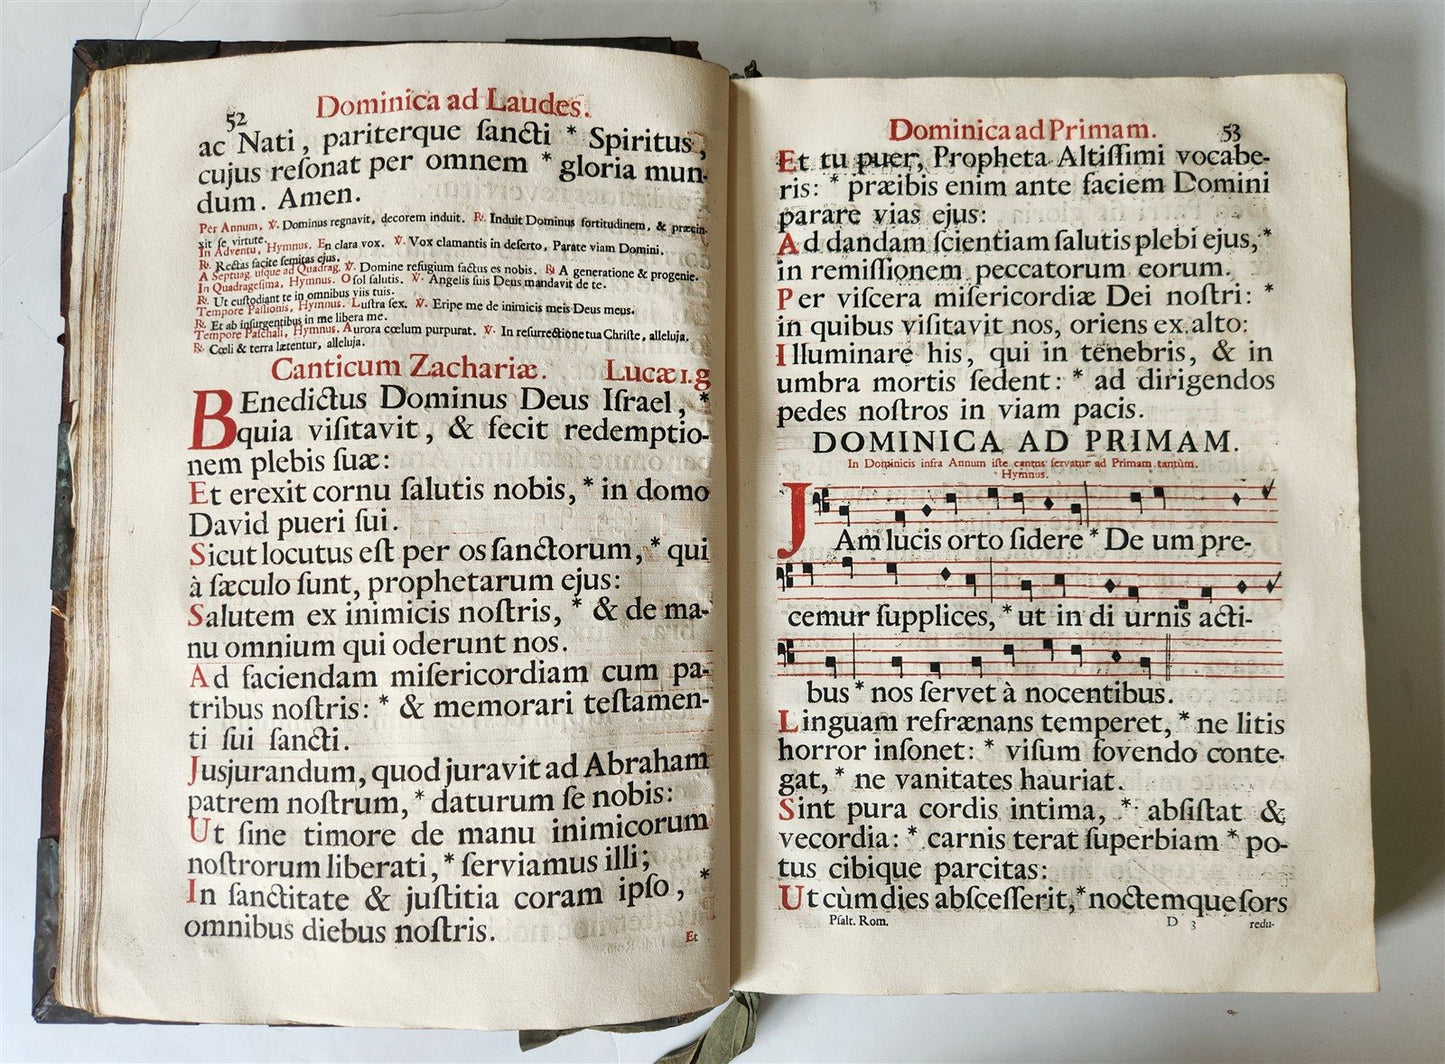 52 Dominica ad Laudes.
ac Nati, pariterque ſancti * Spiritus,
cujus reſonat per omnem * gloria mun-
dum. Amen.
Per Annum, ℣. Dominus regnavit, decorem induit. ℟. Induit Dominus fortitudinem, & præcin-
xit ſe virtute.
In Adventu, Hymnus. En clara vox. ℣. Vox clamantis in deſerto, Parate viam Domini.
℟. Rectas facite ſemitas ejus.
A Septuag. uſque ad Quadrag. ℣. Domine refugium factus es nobis. ℟ A generatione & progenie.
In Quadrageſima, Hymnus. O ſol ſalutis. ℣. Angelis ſuis Deus mandavit de te.
℟. Ut cuſtodiant te in omnibus viis tuis.
Tempore Paſſionis, Hymnus. Luſtra ſex. ℣. Eripe me de inimicis meis Deus meus.
℟. Et ab inſurgentibus in me libera me.
Tempore Paſchali, Hymnus. Aurora cœlum purpurat. ℣. In reſurrectione tua Chriſte, alleluja.
℟. Cœli & terra lætentur, alleluja.
Canticum Zachariæ. Lucæ 1. g
BEnedictus Dominus Deus Iſrael, *
quia viſitavit, & fecit redemptio-
nem plebis ſuæ:
Et erexit cornu ſalutis nobis, * in domo
David pueri ſui.
Sicut locutus eſt per os ſanctorum, * qui
à ſæculo ſunt, prophetarum ejus:
Salutem ex inimicis noſtris, * & de ma-
nu omnium qui oderunt nos.
Ad faciendam miſericordiam cum pa-
tribus noſtris: * & memorari teſtamen-
ti ſui ſancti.
Jusjurandum, quod juravit ad Abraham
patrem noſtrum, * daturum ſe nobis:
Ut ſine timore de manu inimicorum
noſtrorum liberati, * ſerviamus illi;
In ſanctitate & juſtitia coram ipſo, *
omnibus diebus noſtris.
Et
Dominica ad Primam. 53
Et tu puer, Propheta Altiſſimi vocabe-
ris: * præibis enim ante faciem Domini
parare vias ejus:
Ad dandam ſcientiam ſalutis plebi ejus, *
in remiſſionem peccatorum eorum.
Per viſcera miſericordiæ Dei noſtri: *
in quibus viſitavit nos, oriens ex alto:
Illuminare his, qui in tenebris, & in
umbra mortis ſedent: * ad dirigendos
pedes noſtros in viam pacis.
DOMINICA AD PRIMAM.
In Dominicis infra Annum iſte cantus ſervatur ad Primam tantùm.
Hymnus.
JAm lucis orto ſidere * De um pre-
cemur ſupplices, * ut in di urnis acti-
bus * nos ſervet à nocentibus.
Linguam refrænans temperet, * ne litis
horror inſonet: * viſum fovendo conte-
gat, * ne vanitates hauriat.
Sint pura cordis intima, * abſiſtat &
vecordia: * carnis terat ſuperbiam * po-
tus cibique parcitas:
Ut cùm dies abſceſſerit, * noctemque ſors
Pſalt. Rom. D 3 redu-